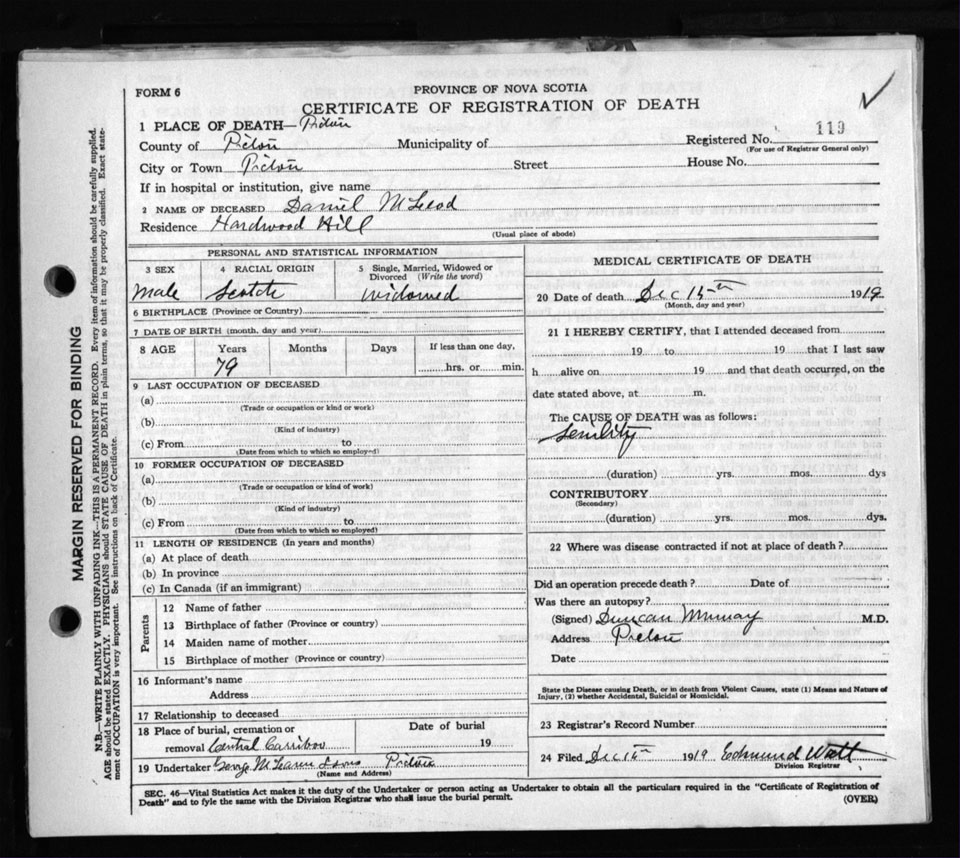 FORM 6
PROVINCE OF NOVA SCOTIA
CERTIFICATE OF REGISTRATION OF DEATH
1 PLACE OF DEATH— Pictou
County of Pictou Municipality of Registered No. 119
(For use of Registrar General only)
City or Town Pictou Street House No.
If in hospital or institution, give name
2 NAME OF DECEASED Daniel McLeod
Residence Hardwood Hill
(Usual place of abode)
PERSONAL AND STATISTICAL INFORMATION
3 SEX 4 RACIAL ORIGIN 5 Single, Married, Widowed or Divorced (Write the word)
Male Scotch widowed
6 BIRTHPLACE (Province or Country)
7 DATE OF BIRTH (month, day and year)
8 AGE Years Months Days If less than one day,
79 hrs. or min.
9 LAST OCCUPATION OF DECEASED
(a)
(Trade or occupation or kind or work)
(b)
(Kind of industry)
(c) From to
(Date from which to which so employed)
10 FORMER OCCUPATION OF DECEASED
(a)
(Trade or occupation or kind of work)
(b)
(Kind of industry)
(c) From to
(Date from which to which so employed)
11 LENGTH OF RESIDENCE (In years and months)
(a) At place of death
(b) In province
(c) In Canada (if an immigrant)
Parents
12 Name of father
13 Birthplace of father (Province or country)
14 Maiden name of mother
15 Birthplace of mother (Province or country)
16 Informant's name
Address
17 Relationship to deceased
18 Place of burial, cremation or Date of burial
removal Central Carribou 19
19 Undertaker George McLearn Sons Pictou
(Name and Address)
MEDICAL CERTIFICATE OF DEATH
20 Date of death Dec 15th 1919
(Month, day and year)
21 I HEREBY CERTIFY, that I attended deceased from
19 to 19 that I last saw
h alive on 19 and that death occurred, on the
date stated above, at m.
The CAUSE OF DEATH was as follows:
Senility
(duration) yrs. mos. dys
CONTRIBUTORY
(Secondary)
(duration) yrs. mos. dys.
22 Where was disease contracted if not at place of death?
Did an operation precede death? Date of
Was there an autopsy?
(Signed) Duncan Murray M.D.
Address Pictou
Date
State the Disease causing Death, or in death from Violent Causes, state (1) Means and Nature of
Injury, (2) whether Accidental, Suicidal or Homicidal.
23 Registrar's Record Number
24 Filed Dec 1919 Edmund Watt
Division Registrar
SEC. 46—Vital Statistics Act makes it the duty of the Undertaker or person acting as Undertaker to obtain all the particulars required in the "Certificate of Registration of
Death" and to fyle the same with the Division Registrar who shall issue the burial permit. (OVER)
MARGIN RESERVED FOR BINDING
N.B.—WRITE PLAINLY WITH UNFADING INK—THIS IS A PERMANENT RECORD. Every item of information should be carefully supplied.
AGE should be stated EXACTLY. PHYSICIANS should STATE CAUSE OF DEATH in plain terms, so that it may be properly classified. Exact statement of OCCUPATION is very important. See instructions on back of Certificate.